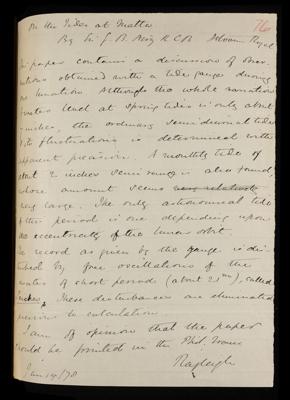 On the Tides at Malta
76
By Sir G. B. Airy K C B Astron. Royal
paper contains a discussion of obser-
vations obtained with a tide gauge during
lunation. Although the whole variation
level at spring tides is only about
inches, the ordinary semidiurnal tide
its fluctuations is determined with
apparent precision. A monthly tide of
about 2 inches semi range is also found,
whose amount seems very relatively
very large. The only astronomical tide
of this period is one depending upon
the eccentricity of the lunar orbit.
The record as given by the gauge is dis-
turbed by free oscillations of the
water of short periods (about 21 m), called
Seiches. These disturbances are eliminated
previous to calculation.
I am of opinion that the paper
should be printed in the Phil. Trans
Rayleigh
Jan 14/78